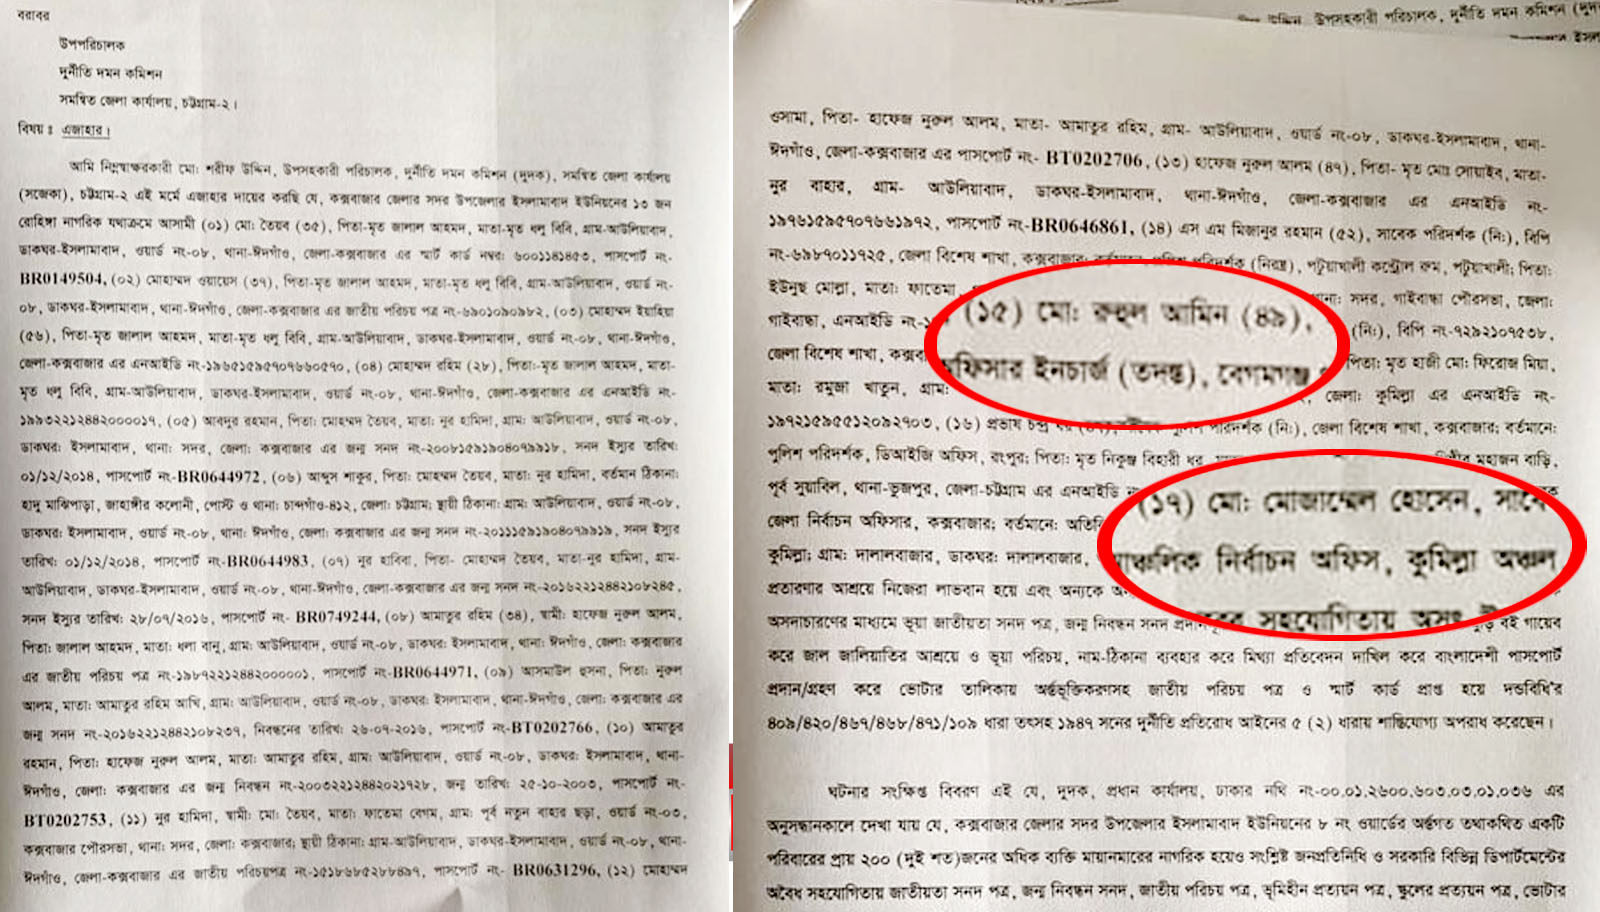 বরাবর
উপপরিচালক
দুর্নীতি দমন কমিশন
সমন্বিত জেলা কার্যালয়, চট্টগ্রাম-২।
বিষয়ঃ এজাহার।
আমি নিম্নস্বাক্ষরকারী মো: শরীফ উদ্দিন, উপসহকারী পরিচালক, দুর্নীতি দমন কমিশন (দুদক), সমন্বিত জেলা কার্যালয়
(সজেকা), চট্টগ্রাম-২ এই মর্মে এজাহার দায়ের করছি যে, কক্সবাজার জেলার সদর উপজেলার ইসলামাবাদ ইউনিয়নের ১৩ জন
রোহিঙ্গা নাগরিক যথাক্রমে আসামী (০১) মো: তৈয়ব (৩৫), পিতা-মৃত জালাল আহমদ, মাতা-মৃত ধলু বিবি, গ্রাম-আউলিয়াবাদ,
ডাকঘর-ইসলামাবাদ, ওয়ার্ড নং-০৮, থানা-ঈদগাঁও, জেলা-কক্সবাজার এর স্মার্ট কার্ড নম্বর: ৬০০১১৪১৪৫৩, পাসপোর্ট নং-
BR0149504, (০২) মোহাম্মদ ওয়ায়েস (৩৭), পিতা-মৃত জালাল আহমদ, মাতা-মৃত ধলু বিবি, গ্রাম-আউলিয়াবাদ, ওয়ার্ড নং-
০৮, ডাকঘর-ইসলামাবাদ, থানা-ঈদগাঁও, জেলা-কক্সবাজার এর জাতীয় পরিচয় পত্র নং-৬৯০১০৯০৯৮২, (০৩) মোহাম্মদ ইয়াহিয়া
(৫৬), পিতা-মৃত জালাল আহমদ, মাতা-মৃত ধলু বিবি, গ্রাম-আউলিয়াবাদ, ডাকঘর-ইসলামাবাদ, ওয়ার্ড নং-০৮, থানা-ঈদগাঁও,
জেলা-কক্সবাজার এর এনআইডি নং-১৯৬৫১৫৯৫৭০৭৬৬০৫৭০, (০৪) মোহাম্মদ রহিম (২৮), পিতা-মৃত জালাল আহমদ, মাতা-
মৃত ধলু বিবি, গ্রাম-আউলিয়াবাদ, ডাকঘর-ইসলামাবাদ, ওয়ার্ড নং-০৮, থানা-ঈদগাঁও, জেলা-কক্সবাজার এর এনআইডি নং-
১৯৯৩২২১২৪৪২০০০০১৭, (০৫) আবদুর রহমান, পিতা: মোহাম্মদ তৈয়ব, মাতা: নুর হামিদা, গ্রাম: আউলিয়াবাদ, ওয়ার্ড নং-০৮,
ডাকঘর: ইসলামাবাদ, থানা: সদর, জেলা: কক্সবাজার এর জন্ম সনদ নং-২০০৮১৫৯১৯০৪০৭৯৯১৮, সনদ ইস্যুর তারিখ:
০১/১২/২০১৪, পাসপোর্ট নং-BR0644972, (০৬) আব্দুস শাকুর, পিতা: মোহাম্মদ তৈয়ব, মাতা: নুর হামিদা, বর্তমান ঠিকানা:
হাদু মাঝিপাড়া, জাহাঙ্গীর কলোনী, পোস্ট ও থানা: চান্দগাঁও-৪১২, জেলা: চট্টগ্রাম; স্থায়ী ঠিকানা: গ্রাম: আউলিয়াবাদ, ওয়ার্ড নং-০৮,
ডাকঘর: ইসলামাবাদ, ওয়ার্ড নং-০৮, থানা: ঈদগাঁও, জেলা: কক্সবাজার এর জন্ম সনদ নং-২০১১১৫৯১৯০৪০৭৯৯১৯, সনদ ইস্যুর
তারিখ: ০১/১২/২০১৪, পাসপোর্ট নং-BR0644983, (০৭) নুর হাবিবা, পিতা- মোহাম্মদ তৈয়ব, মাতা-নুর হামিদা, গ্রাম-
আউলিয়াবাদ, ডাকঘর-ইসলামাবাদ, ওয়ার্ড নং-০৮, থানা-ঈদগাঁও, জেলা-কক্সবাজার এর জন্ম সনদ নং-২০১৬২২১২৪৪২১০৮২৪৫,
সনদ ইস্যুর তারিখ: ২৮/০৭/২০১৬, পাসপোর্ট নং- BR0749244, (০৮) আমাতুর রহিম (৩৪), স্বামী: হাফেজ নুরুল আলম,
পিতা: জালাল আহমদ, মাতা: ধলা বানু, গ্রাম: আউলিয়াবাদ, ওয়ার্ড নং-০৮, ডাকঘর: ইসলামাবাদ, থানা: ঈদগাঁও, জেলা: কক্সবাজার
এর জাতীয় পরিচয় পত্র নং-১৯৮৭২২১২৪৪২০০০০০১, পাসপোর্ট নং-BR0644971, (০৯) আসমাউল হুসনা, পিতা: নুরুল
আলম, মাতা: আমাতুর রহিম আখি, গ্রাম: আউলিয়াবাদ, ওয়ার্ড নং-০৮, ডাকঘর: ইসলামাবাদ, থানা-ঈদগাঁও, জেলা: কক্সবাজার এর
জন্ম সনদ নং-২০১৬২২১২৪৪২১০৮২৩৭, নিবন্ধনের তারিখ: ২৬-০৭-২০১৬, পাসপোর্ট নং-BT0202766, (১০) আমাতুর
রহমান, পিতা: হাফেজ নুরুল আলম, মাতা: আমাতুর রহিম, গ্রাম: আউলিয়াবাদ, ওয়ার্ড নং-০৮, ডাকঘর: ইসলামাবাদ, থানা-
ঈদগাঁও, জেলা: কক্সবাজার এর জন্ম নিবন্ধন নং-২০০৩২২১২৪৪২০২১৭২৮, জন্ম তারিখ: ২৫-১০-২০০৩, পাসপোর্ট নং-
BT0202753, (১১) নুর হামিদা, স্বামী: মো: তৈয়ব, মাতা: ফাতেমা বেগম, গ্রাম: পূর্ব নতুন বাহার ছড়া, ওয়ার্ড নং-০৩,
কক্সবাজার পৌরসভা, থানা: সদর, জেলা: কক্সবাজার; স্থায়ী ঠিকানা: গ্রাম-আউলিয়াবাদ, ডাকঘর-ইসলামাবাদ, ওয়ার্ড নং-০৮, থানা-
ঈদগাঁও, জেলা-কক্সবাজার এর জাতীয় পরিচয়পত্র নং-১৫১৮৬৮৫২৮৮৪৯৭, পাসপোর্ট নং- BR0631296, (১২) মোহাম্মদ
উদ্দিন, উপসহকারী পরিচালক, দুর্নীতি দমন কমিশন
ওসামা, পিতা- হাফেজ নুরুল আলম, মাতা- আমাতুর রহিম, গ্রাম- আউলিয়াবাদ, ওয়ার্ড নং-০৮, ডাকঘর-ইসলামাবাদ, থানা-
ঈদগাঁও, জেলা-কক্সবাজার এর পাসপোর্ট নং- BT0202706, (১৩) হাফেজ নুরুল আলম (৪৭), পিতা- মৃত মোঃ সোয়াইব, মাতা-
নুর বাহার, গ্রাম- আউলিয়াবাদ, ডাকঘর-ইসলামাবাদ, থানা-ঈদগাঁও, জেলা-কক্সবাজার এর এনআইডি নং-
১৯৭৬১৫৯৫৭০৭৬৬১৯৭২, পাসপোর্ট নং-BR0646861, (১৪) এস এম মিজানুর রহমান (৫২), সাবেক পরিদর্শক (নি:), বিপি
নং-৬৯৮৭০১১৭২৫, জেলা বিশেষ শাখা, কক্সবাজার; বর্তমানে: পুলিশ পরিদর্শক (নিরস্ত্র), পটুয়াখালী কন্ট্রোল রুম, পটুয়াখালী; পিতা:
ইউনুছ মোল্লা, মাতা: ফাতেমা, থানা: সদর, গাইবান্ধা পৌরসভা, জেলা:
গাইবান্ধা, এনআইডি নং- (১৫) মো: রুহুল আমিন (৪৯), (নি:), বিপি নং-৭২৯২১০৭৫৩৮,
জেলা বিশেষ শাখা, অফিসার ইনচার্জ (তদন্ত), বেগমগঞ্জ পিতা: মৃত হাজী মো: ফিরোজ মিয়া,
মাতা: রমুজা খাতুন, গ্রাম: জেলা: কুমিল্লা এর এনআইডি নং-
১৯৭২১৫৯৫৫১২০৯২৭০৩, (১৬) প্রভাষ চন্দ্র পরিদর্শক (নি:), জেলা বিশেষ শাখা, কক্সবাজার; বর্তমানে:
পুলিশ পরিদর্শক, ডিআইজি অফিস, রংপুর; পিতা: মৃত নিকুঞ্জ বিহারী ধর, মহাজন বাড়ি,
পূর্ব সুয়াবিল, থানা-ভুজপুর, জেলা-চট্টগ্রাম এর এনআইডি (১৭) মো: মোজাম্মেল হোসেন,
জেলা নির্বাচন অফিসার, কক্সবাজার; বর্তমানে:
কুমিল্লা; গ্রাম: দালালবাজার, ডাকঘর: দালালবাজার, নির্বাচন অফিস, কুমিল্লা অঞ্চল
প্রতারণার আশ্রয়ে নিজেরা লাভবান হয়ে এবং অন্যকে সহযোগিতায় অসৎ
অসদাচারণের মাধ্যমে ভূয়া জাতীয়তা সনদ পত্র, জন্ম নিবন্ধন সনদ বই গায়েব
করে জাল জালিয়াতির আশ্রয়ে ও ভূয়া পরিচয়, নাম-ঠিকানা ব্যবহার করে মিথ্যা প্রতিবেদন দাখিল করে বাংলাদেশী পাসপোর্ট
প্রদান/গ্রহণ করে ভোটার তালিকায় অর্ন্তভূক্তিকরণসহ জাতীয় পরিচয় পত্র ও স্মার্ট কার্ড প্রাপ্ত হয়ে দন্ডবিধি'র
৪০৯/৪২০/৪৬৭/৪৬৮/৪৭১/১০৯ ধারা তৎসহ ১৯৪৭ সনের দুর্নীতি প্রতিরোধ আইনের ৫ (২) ধারায় শাস্তিযোগ্য অপরাধ করেছেন।
ঘটনার সংক্ষিপ্ত বিবরণ এই যে, দুদক, প্রধান কার্যালয়, ঢাকার নথি নং-০০.০১.২৬০০.৬০৩.০৩.০১.০৩৬ এর
অনুসন্ধানকালে দেখা যায় যে, কক্সবাজার জেলার সদর উপজেলার ইসলামাবাদ ইউনিয়নের ৮ নং ওয়ার্ডের অর্ন্তগত তথাকথিত একটি
পরিবারের প্রায় ২০০ (দুই শত)জনের অধিক ব্যক্তি মায়ানমারের নাগরিক হয়েও সংশ্লিষ্ট জনপ্রতিনিধি ও সরকারি বিভিন্ন ডিপার্টমেন্টের
অবৈধ সহযোগিতায় জাতীয়তা সনদ পত্র, জন্ম নিবন্ধন সনদ, জাতীয় পরিচয় পত্র, ভূমিহীন প্রত্যয়ন পত্র, স্কুলের প্রত্যয়ন পত্র, ভোটার